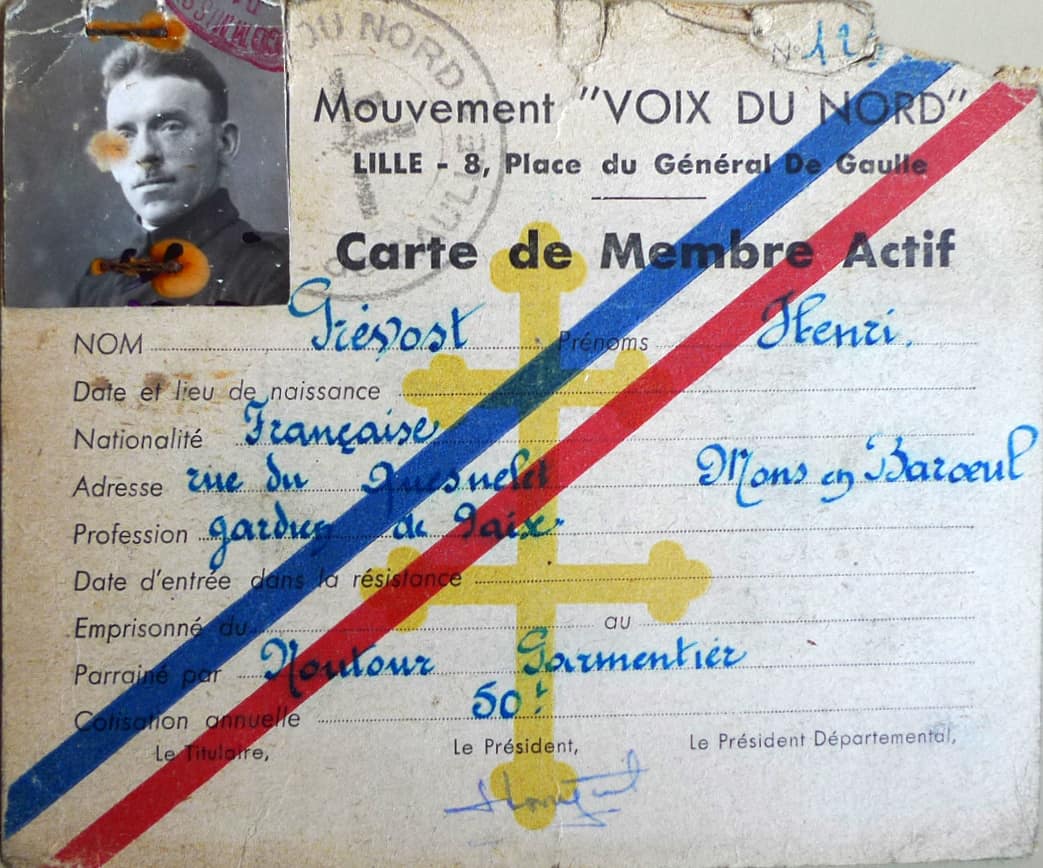 DU NORD
GAULLE
N° 12
Mouvement "VOIX DU NORD"
LILLE - 8, Place du Général De Gaulle
Carte de Membre Actif
NOM Prévost Prénoms Henri.
Date et lieu de naissance
Nationalité Française
Adresse rue du Quesnelet Mons en Baroeul
Profession gardien de Paix
Date d'entrée dans la résistance
Emprisonné du au
Parrainé par Noutour Parmentier
Cotisation annuelle 50f
Le Titulaire, Le Président, Le Président Départemental,